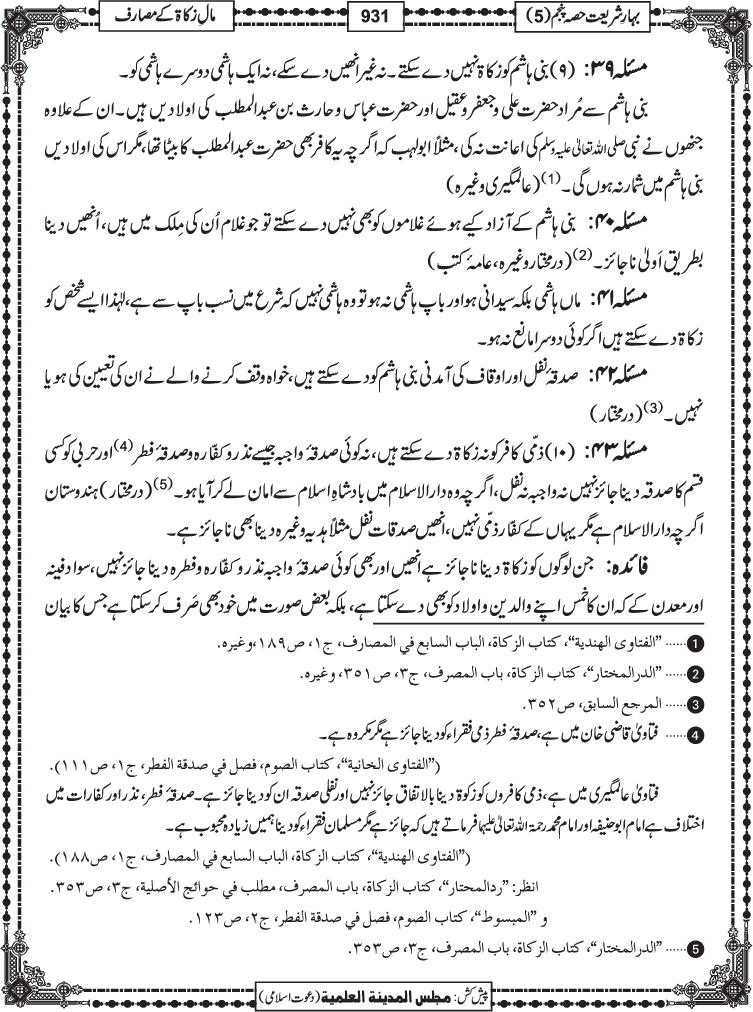 بہارِ شریعت حصہ پنجم (5)
931
مالِ زکاۃ کے مصارف
مسئلہ ۳۹: (۹) بنی ہاشم کو زکاۃ نہیں دے سکتے۔ نہ غیر انھیں دے سکے، نہ ایک ہاشمی دوسرے ہاشمی کو۔
بنی ہاشم سے مُراد حضرت علی و جعفر و عقیل اور حضرت عباس و حارث بن عبدالمطلب کی اولادیں ہیں۔ ان کے علاوہ
جنھوں نے نبی صلی اللہ تعالیٰ علیہ وسلم کی اعانت نہ کی، مثلاً ابولہب کہ اگرچہ یہ کافر بھی حضرت عبدالمطلب کا بیٹا تھا، مگر اس کی اولادیں
بنی ہاشم میں شمار نہ ہوں گی۔(1) (عالمگیری وغیرہ)
مسئلہ ۴۰: بنی ہاشم کے آزاد کیے ہوئے غلاموں کو بھی نہیں دے سکتے تو جو غلام اُن کی مِلک میں ہیں، اُنھیں دینا
بطریق اَولیٰ ناجائز۔(2) (درمختار وغیرہ، عامۂ کتب)
مسئلہ ۴۱: ماں ہاشمی بلکہ سیدانی ہو اور باپ ہاشمی نہ ہو تو وہ ہاشمی نہیں کہ شرع میں نسب باپ سے ہے، لہٰذا ایسے شخص کو
زکاۃ دے سکتے ہیں اگر کوئی دوسرا مانع نہ ہو۔
مسئلہ ۴۲: صدقۂ نفل اور اوقاف کی آمدنی بنی ہاشم کو دے سکتے ہیں، خواہ وقف کرنے والے نے ان کی تعیین کی ہو یا
نہیں۔(3) (درمختار)
مسئلہ ۴۳: (۱۰) ذمّی کافر کو نہ زکاۃ دے سکتے ہیں، نہ کوئی صدقۂ واجبہ جیسے نذر و کفّارہ و صدقۂ فطر(4) اور حربی کو کسی
قسم کا صدقہ دینا جائز نہیں نہ واجبہ نہ نفل، اگرچہ وہ دارالاسلام میں بادشاہِ اسلام سے امان لے کر آیا ہو۔(5) (درمختار) ہندوستان
اگرچہ دارالاسلام ہے مگر یہاں کے کفّار ذمّی نہیں، انھیں صدقات نفل مثلاً ہدیہ وغیرہ دینا بھی ناجائز ہے۔
فائدہ: جن لوگوں کو زکاۃ دینا ناجائز ہے انھیں اور بھی کوئی صدقۂ واجبہ نذر و کفّارہ و فطرہ دینا جائز نہیں، سوا دفینہ
اور معدن کے کہ ان کا خمس اپنے والدین و اولاد کو بھی دے سکتا ہے، بلکہ بعض صورت میں خود بھی صَرف کر سکتا ہے جس کا بیان
1 ...... ”الفتاوی الهندية“، كتاب الزكاة، الباب السابع في المصارف، ج١، ص١٨٩، وغيره.
2 ...... ”الدرالمختار“، كتاب الزكاة، باب المصرف، ج٣، ص٣٥١، وغيره.
3 ...... المرجع السابق، ص٣٥٢.
4 ...... فتاویٰ قاضی خان میں ہے، صدقۂ فطر ذمی فقراء کو دینا جائز ہے مگر مکروہ ہے۔
(”الفتاوى الخانية“، كتاب الصوم، فصل في صدقة الفطر، ج١، ص١١١).
فتاویٰ عالمگیری میں ہے، ذمی کافروں کو زکوٰۃ دینا بالاتفاق جائز نہیں اور نفلی صدقہ ان کو دینا جائز ہے۔ صدقۂ فطر، نذر اور کفارات میں
اختلاف ہے امام ابوحنیفہ اور امام محمد رحمۃ اللہ تعالیٰ علیہما فرماتے ہیں کہ جائز ہے مگر مسلمان فقراء کو دینا ہمیں زیادہ محبوب ہے۔
(”الفتاوى الهندية“، كتاب الزكاة، الباب السابع في المصارف، ج١، ص١٨٨).
انظر: ”ردالمحتار“، كتاب الزكاة، باب المصرف، مطلب في حوائج الأصلية، ج٣، ص٣٥٣.
و ”المبسوط“، كتاب الصوم، فصل في صدقة الفطر، ج٢، ص١٢٣.
5 ...... ”الدرالمختار“، كتاب الزكاة، باب المصرف، ج٣، ص٣٥٣.
پیش کش: مجلس المدینة العلمية (دعوت اسلامی)